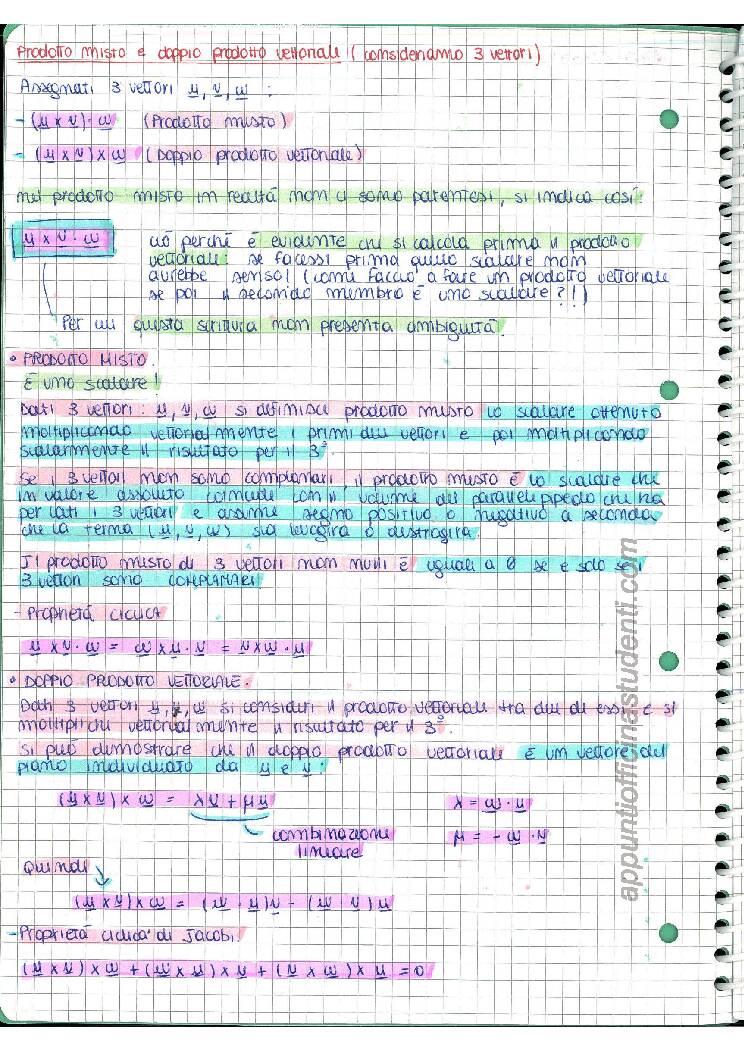 Prodotto misto e doppio prodotto vettoriale (consideriamo 3 vettori)
Assegnati 3 vettori u, v, w :
- (u x v) · w (Prodotto misto)
- (u x v) x w (Doppio prodotto vettoriale)
nel prodotto misto in realtà non ci sono parentesi, si indica così:
u x v · w ciò perché è evidente che si calcola prima il prodotto
vettoriale: se facessi prima quello scalare non
avrebbe senso! (come faccio a fare un prodotto vettoriale
se poi il secondo membro è uno scalare?!)
Per cui questa scrittura non presenta ambiguità.
• PRODOTTO MISTO.
È uno scalare!
Dati 3 vettori: u, v, w si definisce prodotto misto lo scalare ottenuto
moltiplicando vettorialmente i primi due vettori e poi moltiplicando
scalarmente il risultato per il 3°.
Se i 3 vettori non sono complanari, il prodotto misto è lo scalare che
in valore assoluto coincide con il volume del parallelepipedo che ha
per lati i 3 vettori e assume segno positivo o negativo a seconda
che la terna (u, v, w) sia levogira o destrogira.
Il prodotto misto di 3 vettori non nulli è uguale a 0 se e solo se i
3 vettori sono COMPLANARI
- Proprietà CICLICA
u x v · w = w x u · v = v x w · u
• DOPPIO PRODOTTO VETTORIALE.
Dati 3 vettori u, v, w si consideri il prodotto vettoriale tra due di essi e si
moltiplichi vettorialmente il risultato per il 3°.
Si può dimostrare che il doppio prodotto vettoriale è un vettore del
piano individuato da u e v:
(u x v) x w = λv + μu λ = w · u
combinazione μ = - w · v
lineare
Quindi
(u x v) x w = (w · u)v - (w v) u
- Proprietà ciclica di Jacobi:
(u x v) x w + (w x u) x v + (v x w) x u = 0
appuntiofficinastudenti.com